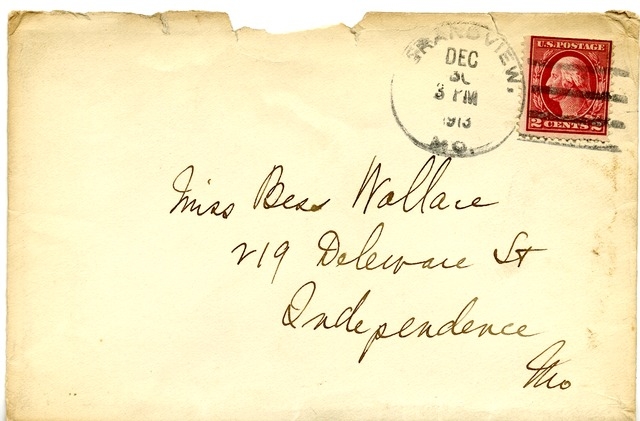 GRANDVIEW,
DEC
30
3 PM
1913
MO.
U.S. POSTAGE
2 CENTS 2
Miss Bess Wallace
219 Deleware St
Independence
Mo